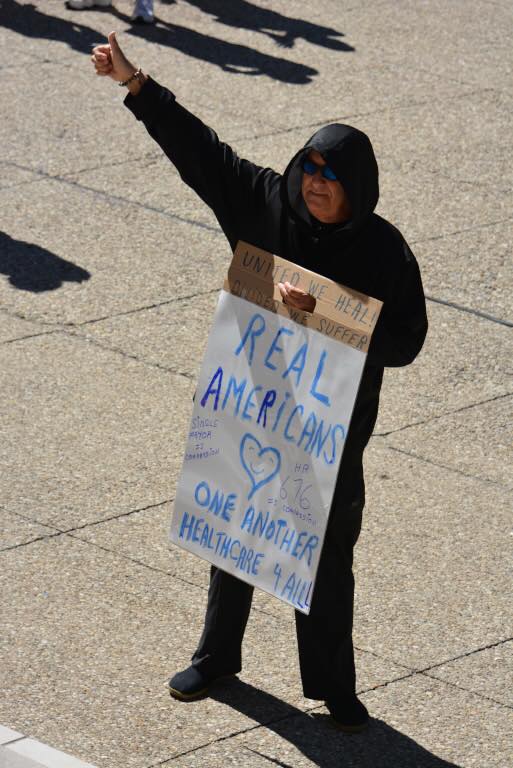 UNITED WE HEAL!
DIVIDED WE SUFFER
REAL
AMERiCANS
SiNGLE
PAYOR
=S
COMPASSION
HR
676
=S COMPASSION
ONE ANOTHER
HEALTHCARE 4 ALL!